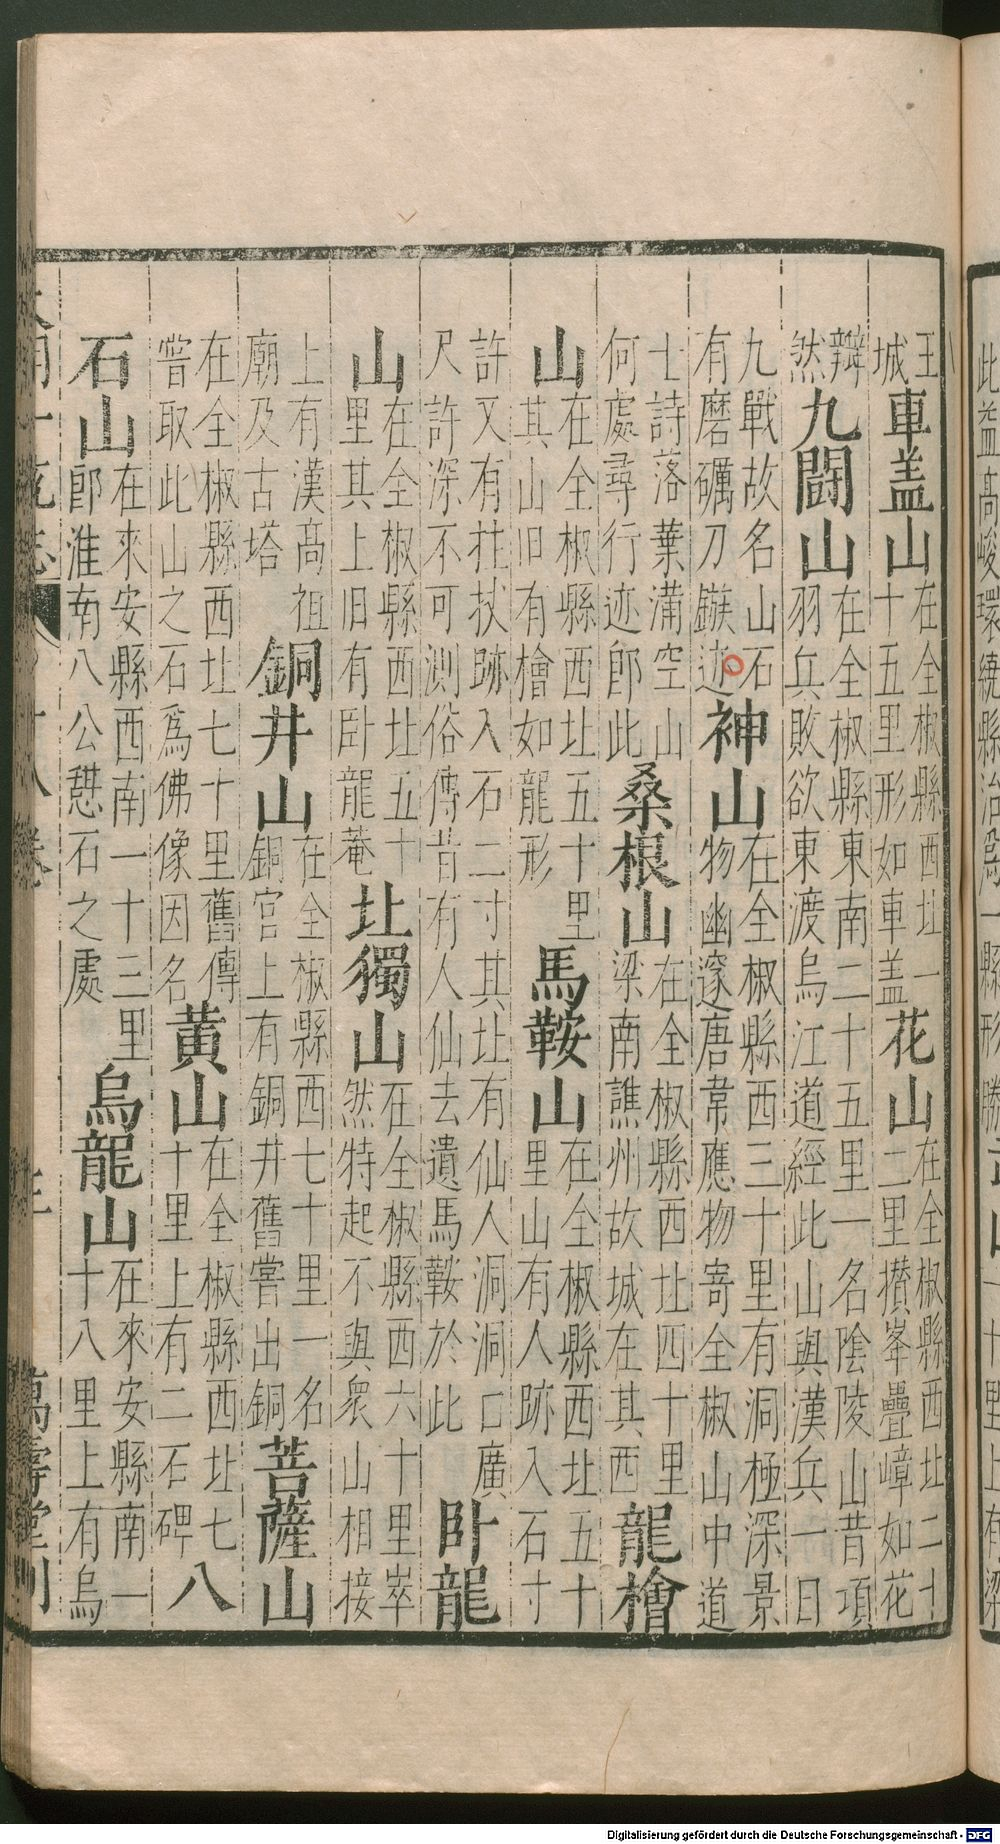 王城車盖山在全椒縣西北一十五里形如車盖花山在全椒縣西北二十二里攅峯疊嶂如花
辧然九鬪山在全椒縣東南二十五里一名陰陵山昔項羽兵敗欲東渡烏江道經此山與漢兵一日
九戰故名山石有磨礪刀鏃迹神山在全椒縣西三十里有洞極深景物幽邃唐韋應物寄全椒山中道
士詩落葉滿空山何處尋行迹郎此桑根山在全椒縣西北四十里梁南譙州故城在其西龍檜
山在全椒縣西北五十里其山旧有檜如龍形馬鞍山在全椒縣西北五十里山有人跡入石寸
許又有拄杖跡入石二寸其北有仙人洞洞口廣尺許深不可測俗傳昔有人仙去遺馬鞍於此卧龍
山在全椒縣西北五十里其上旧有卧龍菴北獨山在全椒縣西六十里崒然特起不與衆山相接
上有漢髙祖廟及古塔銅井山在全椒縣西七十里一名銅官上有銅井舊嘗出銅菩薩山
在全椒縣西北七十里舊傳嘗取此山之石爲佛像因名黄山在全椒縣西北七十里上有二石碑八
石山在來安縣西南一十三里郎淮南八公憇石之處烏龍山在來安縣南一十八里上有烏
萬壽堂刊
Digitalisierung gefördert durch die Deutsche Forschungsgemeinschaft - DFG